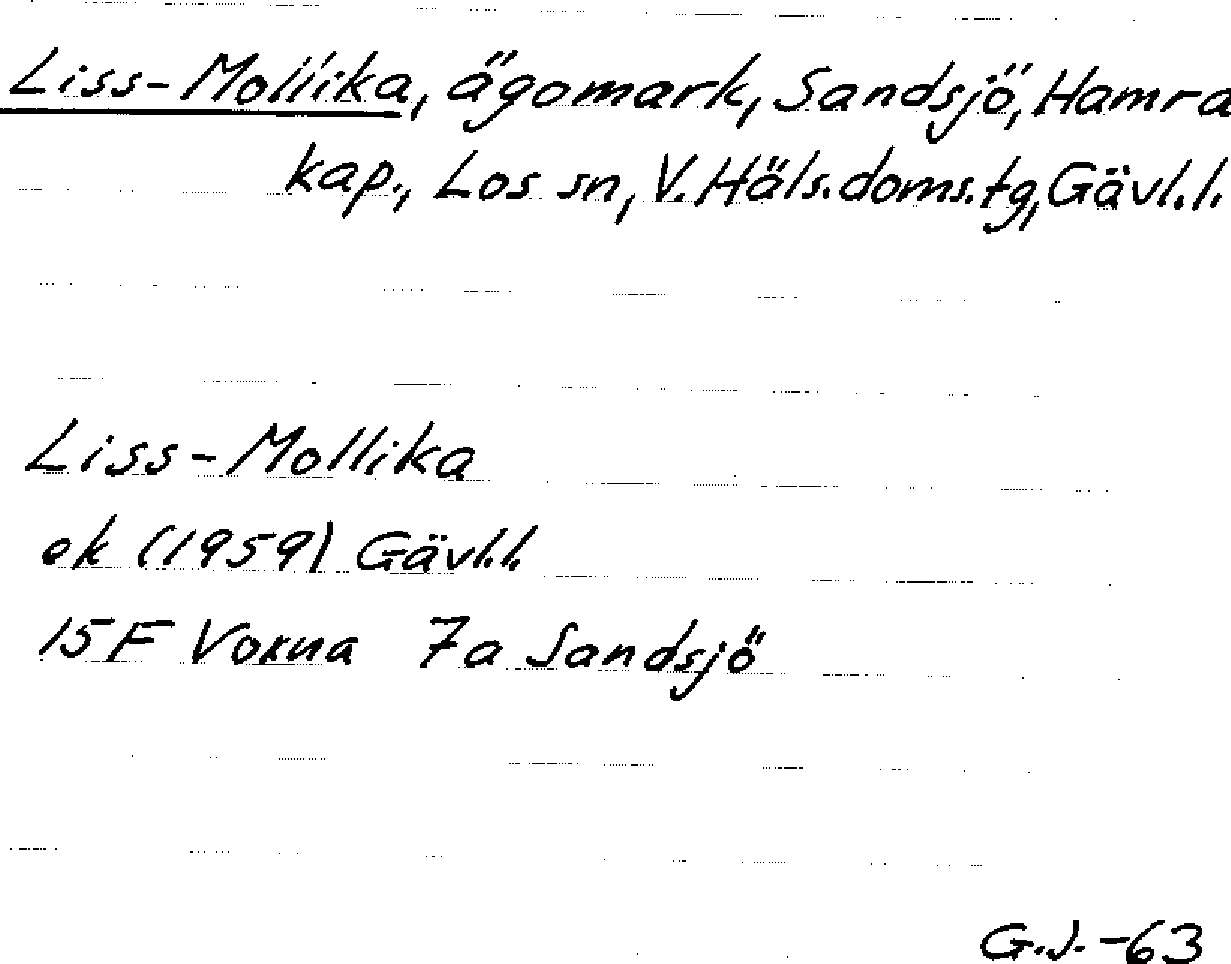 Liss-Mollika, ägomark, Sandsjö, Hamra
kap., Los sn, V. Häls. doms. tg, Gävl. l.
Liss-Mollika
ek (1959) Gävl. l.
15F Voxna 7a Sandsjö
G.J. -63